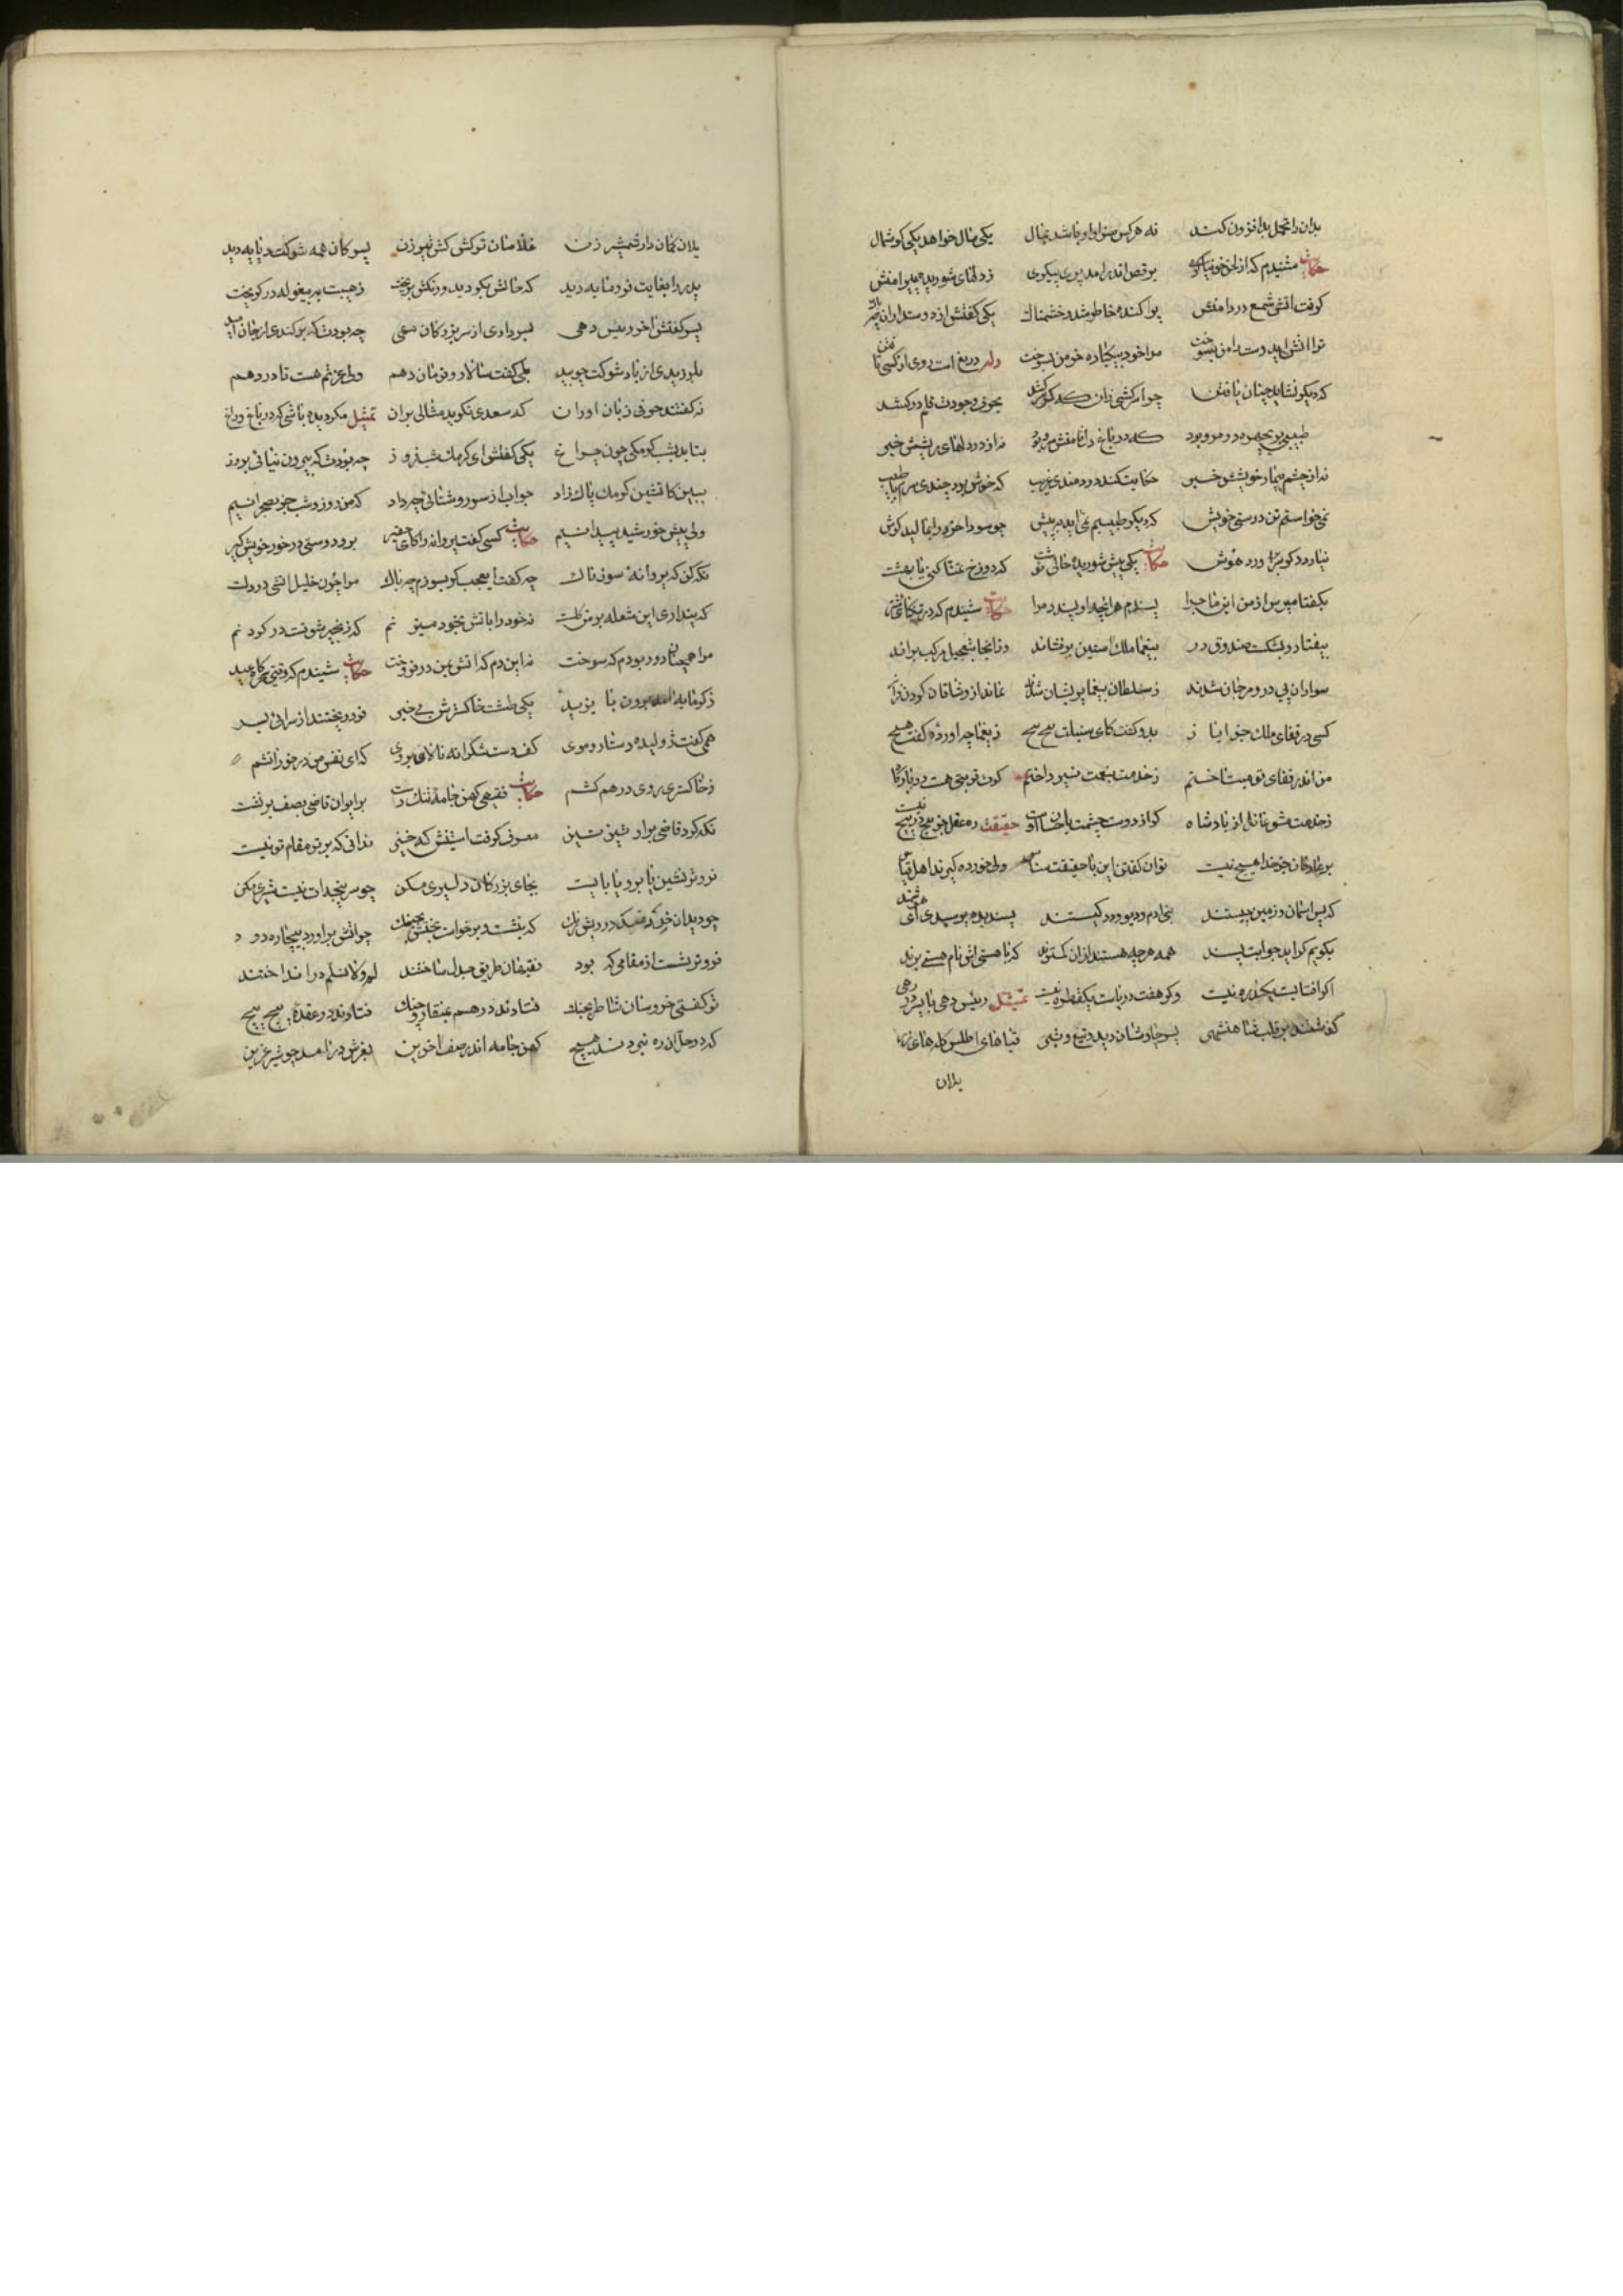 بدان را تحمل بد افزون کند نه هرکس سزاوار باشد بمال یکی مال خواهد یکی گوشمال
حکایت شنیدم که از لحن خنیاگری برقص اندر آمد پری پیکری ز دلهای شوریده پیرامنش
گرفت آتش شمع در دامنش پراکنده خاطر شد و خشمناک یکی گفتش از دوستداران چه باک
ترا آتش ای دوست دامن بسوخت مرا خود بیکباره خرمن بسوخت دریغ است روی از کسی تافتن
که دیگر نشاید چنان یافتن چو حرفی وجودت قلم درکشد
طبیبی پریچهره در مرو بود که در باغ دل قامتش سرو بود نه از درد دلهای ریشش خبر
نه از چشم بیمار خویشش خبر حکایت کند دردمندی غریب که خوش بود چندی سرم با طبیب
نمی خواستم تن درستی خویش که دیگر طبیبم نمی آید به پیش چو سودا خرد را بمالید گوش
نیارد دگر سر برآورد هوش حکایت یکی پیش شوریده حالی نوشت که دوزخ تمنا کنی یا بهشت
بگفتا مپرس از من این ماجرا پسندم هرانچه او پسندد مرا حکایت شنیدم که در تنگنای شتر
بیفتاد و بشکست صندوق در بیغما ملک آستین برفشاند وز انجا بتعجیل مرکب براند
سواران پی در و مرجان شدند ز سلطان بیغما پریشان شدند نماند از وشاقان گردن فراز
کسی در قفای ملک جز ایاز بدو گفت کای سنبلت پیچ پیچ ز یغما چه آورده گفت هیچ
من اندر قفای تو میتاختم ز خدمت بنعمت نپرداختم گرت قربتی هست در بارگاه
ز خدمت مشو غافل از پادشاه گر از دوست چشمت باحسان اوست حقیقت ره عقل جز پیچ در پیچ نیست
بر عارفان جز خدا هیچ نیست توان گفتن این با حقیقت شناس ولی خورده گیرند اهل قیاس
که پس آسمان و زمین چیستند بنی آدم و دیو و دد کیستند پسندیده پرسیدی ای هوشمند
بگویم گر آید جوابت پسند همه هرچه هستند ازان کمترند که با هستی اش نام هستی برند
اگر آفتابست یکذره نیست وگر هفت دریاست یکقطره نیست تمثیل رئیس دهی با پسر در رهی
گذشتند بر قلب شاهنشهی پسر چاوشان دید و تیغ و تبر قباهای اطلس کله های زر
یلان
یلان کمان دار شمشیر زن غلامان ترکش کش تیر زن پسر کان همه شوکت و پایه دید
پدر را بغایت فرومایه دید که حالش بگردید و رنگش بریخت ز هیبت به بیغوله در گریخت
پسر گفتش آخر رئیس دهی بسرداری از سر بزرگان مهی چه بودت که برکندی از جان امید
بلرزیدی از باد شوکت چو بید بلی گفت سالار و فرمان دهم ولی عزتم هست تا در دهم
نگفتند حرفی زبان آوران که سعدی نگوید مثالی بران تمثیل مگر دیده باشی که در باغ و راغ
بتابد بشب کرمکی چون چراغ یکی گفتش ای کرمک شب فروز چه بودت که بیرون نیائی بروز
ببین کاتشین کرمک پاک زاد جواب از سر روشنائی چه داد که من روز و شب جز بصحرا نیم
ولی پیش خورشید پیدا نیم حکایت کسی گفت پروانه را کای حقیر برو دوستی در خور خویش گیر
نگه کن که پروانه سوزناک چه گفت ای عجب گر بسوزم چه باک مرا چون خلیل آتشی در دلست
که پنداری این شعله بر من گلست نه خود را بآتش بخود میزنم که زنجیر شوقست در گردنم
مرا همچنان دور بودم که سوخت نه این دم که آتش بمن درفروخت حکایت شنیدم که وقتی سحرگاه عید
ز گرمابه آمد برون بایزید یکی طشت خاکسترش بی خبر فرو ریختند از سرائی بسر
همی گفت ژولیده دستار و موی کف دست شکرانه مالان بروی که ای نفس من در خور آتشم
ز خاکستری روی درهم کشم حکایت فقیهی کهن جامه تنگ دست بر ایوان قاضی بصف برنشست
نگه کرد قاضی بر او تیز تیز معرف گرفت آستینش که خیز ندانی که برتر مقام تو نیست
فروتر نشین یا برو یا بایست بجای بزرگان دلیری مکن چو سر پنجه ات نیست شیری مکن
چو دید آن خردمند درویش رنگ که بنشست و برخاست بختش بجنگ چو آتش برآورد بیچاره دود
فروتر نشست از مقامی که بود فقیهان طریق جدل ساختند لم و لا نسلم درانداختند
تو گفتی خروسان شاطر بجنگ فتادند درهم بمنقار و چنگ فتادند در عقده پیچ پیچ
که در حل آن ره نبردند هیچ کهن جامه اندر صف آخرین بغرش درآمد چو شیر عرین